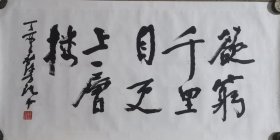 欲窮
千里
目更
上一層
樓
丁酉